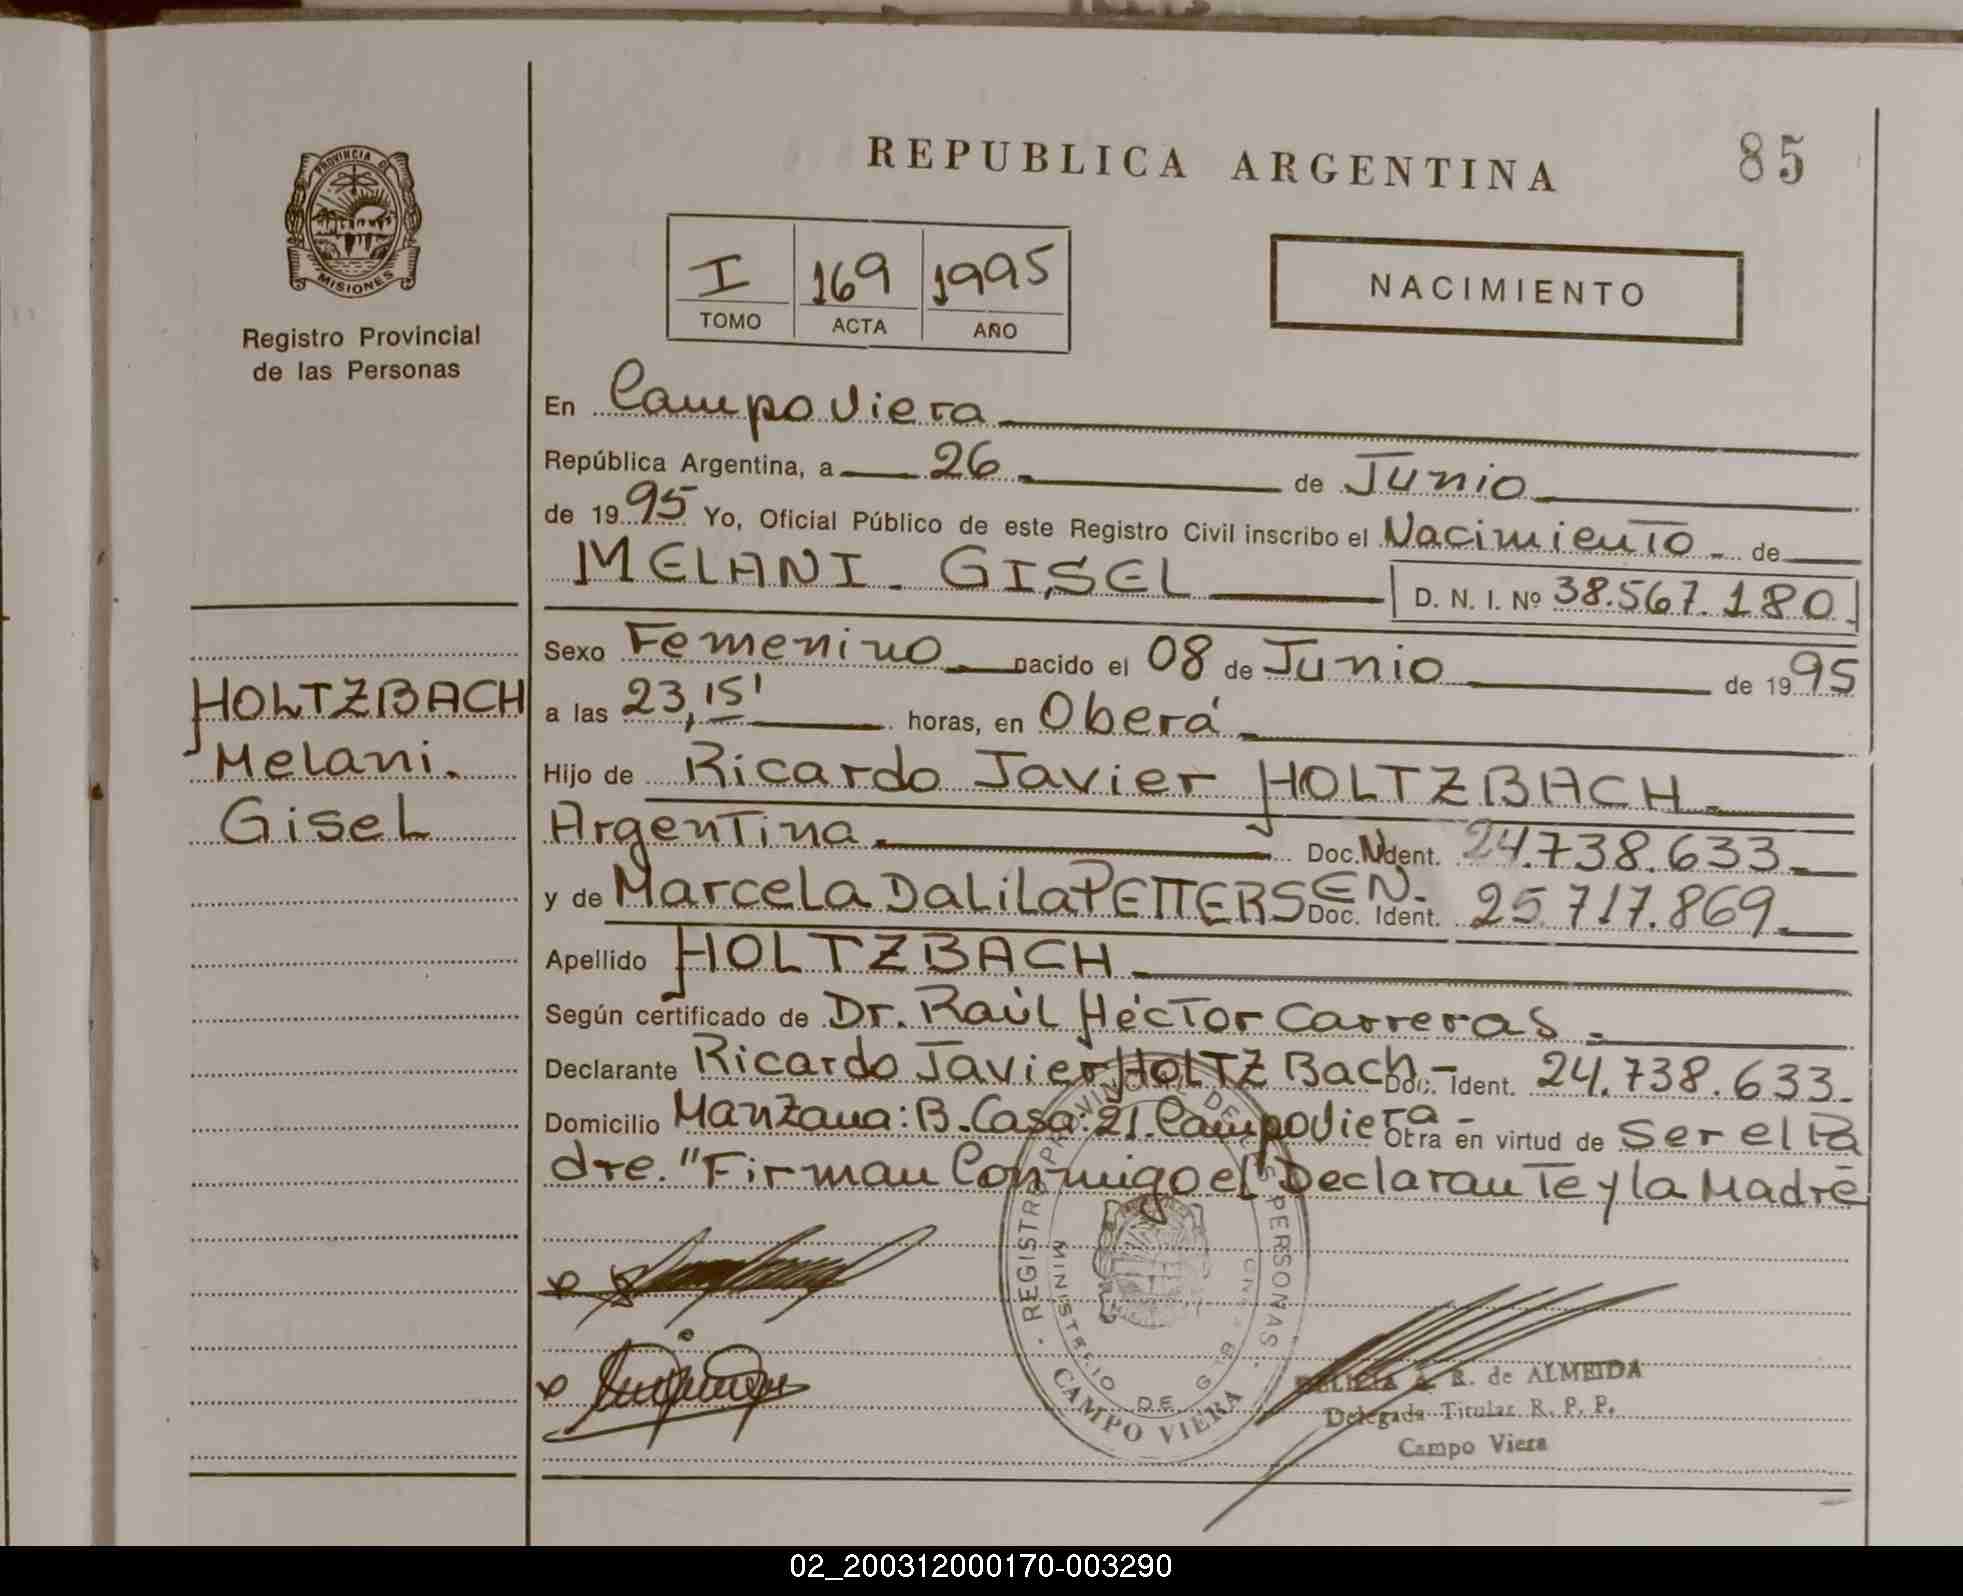 REPUBLICA ARGENTINA
85
PROVINCIA DE
MISIONES
Registro Provincial
de las Personas
I 169 1995
TOMO ACTA AÑO
NACIMIENTO
En Campo Viera
República Argentina, a 26 de Junio
de 1995 Yo, Oficial Público de este Registro Civil inscribo el Nacimiento de
MELANI GISEL D. N. I. Nº 38.567.180
Sexo Femenino nacido el 08 de Junio de 1995
a las 23,15' horas, en Oberá
Hijo de Ricardo Javier HOLTZBACH
Argentina Doc. Ident. 24.738.633
y de Marcela Dalila PETTERSEN. Doc. Ident. 25.717.869
Apellido HOLTZBACH
Según certificado de Dr. Raúl Héctor Carreras
Declarante Ricardo Javier HOLTZBach Doc. Ident. 24.738.633
Domicilio Manzana: B. Casa: 21. Campo Viera Otra en virtud de Ser el Pa
dre. "Firman Conmigo el Declarante y la Madre
HOLTZBACH
Melani.
Gisel
REGISTRO PROVINCIAL DE LAS PERSONAS
MINISTERIO DE
CAMPO VIERA
A. R. de ALMEIDA
Delegada Titular R. P. P.
Campo Viera
02_200312000170-003290